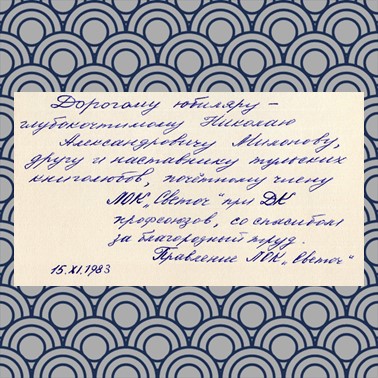 Дорогому юбиляру –
глубокочтимому Николаю
Александровичу Милонову,
другу и наставнику тульских
книголюбов, почётному члену
ЛОК „Светоч" при ДК
профсоюзов, со спасибом
за благородный труд.
Правление ЛОК „Светоч"
15.XI.1983